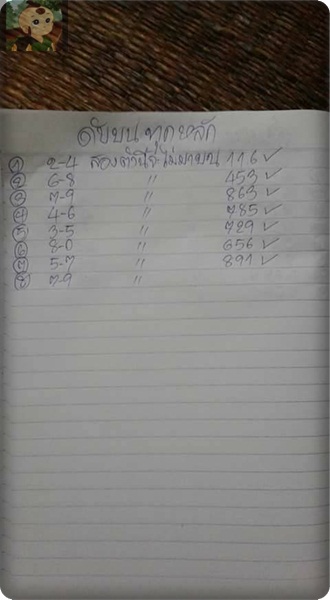 ดับบน ทุกหลัก
① 2-4 สองตัวนี้จะไม่มาบน 116 ✓
② 6-8 " 453 ✓
③ 7-9 " 863 ✓
④ 4-6 " 785 ✓
⑤ 3-5 " 729 ✓
⑥ 8-0 " 656 ✓
⑦ 5-7 " 891 ✓
⑧ 7-9 "